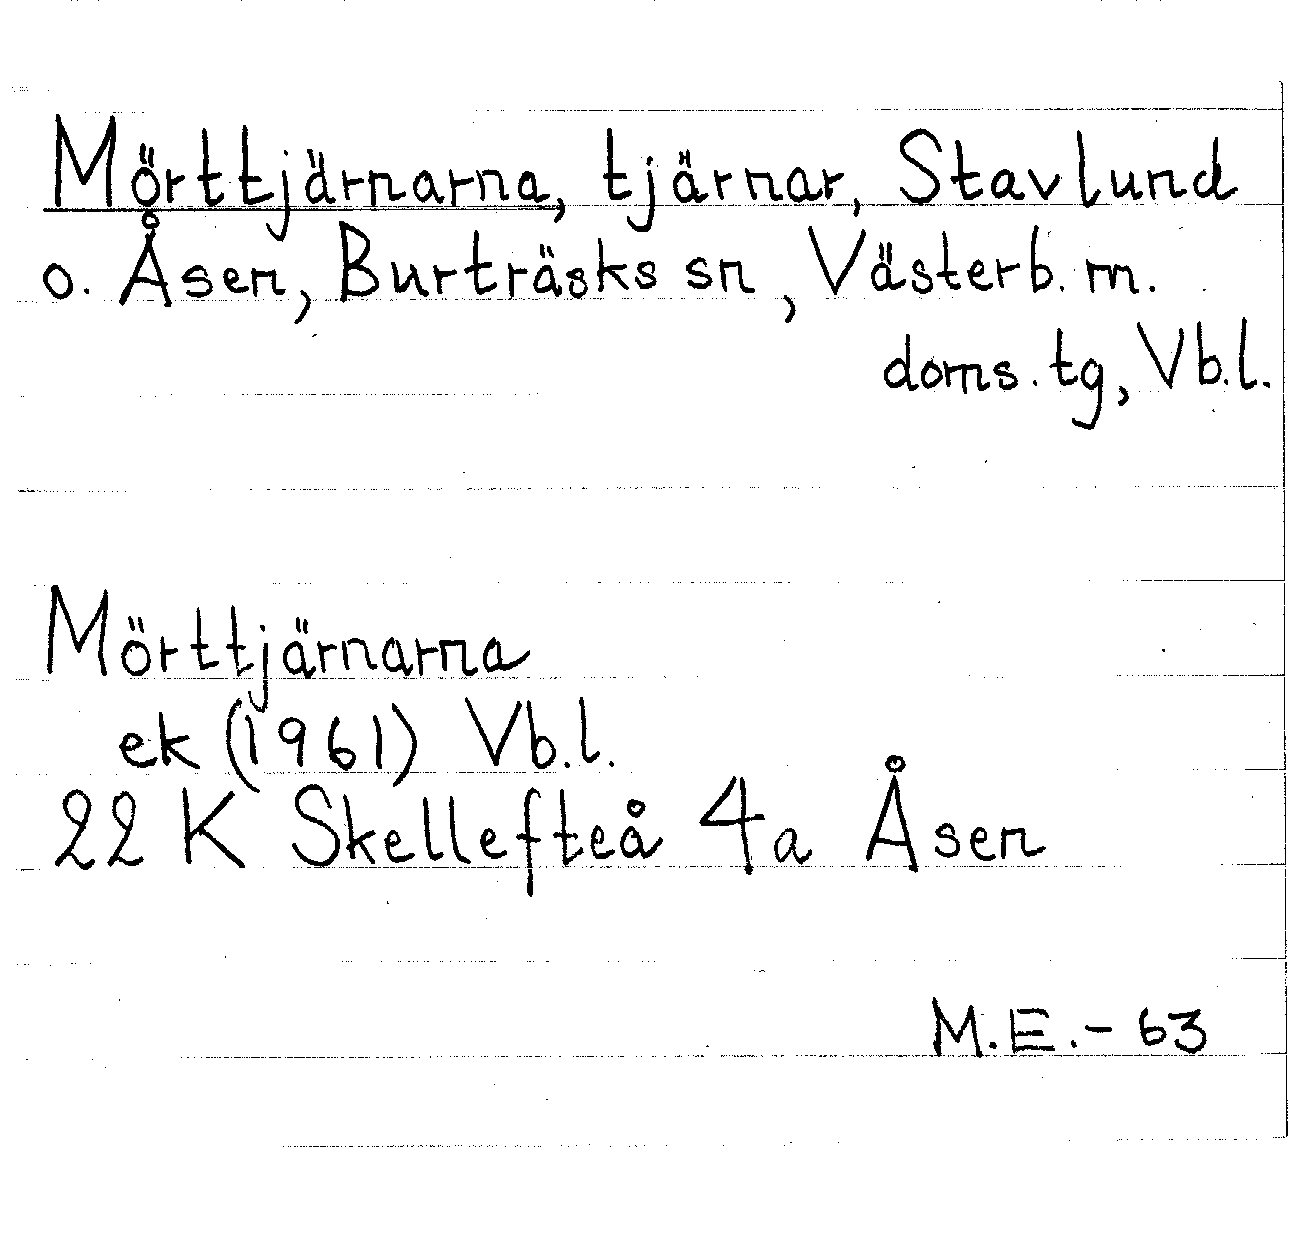 Mörttjärnarna, tjärnar, Stavlund
o. Åsen, Burträsks sn, Västerb. m.
doms. tg, Vb.l.
Mörttjärnarna
ek (1961) Vb.l.
22 K Skellefteå 4a Åsen
M.E.-63